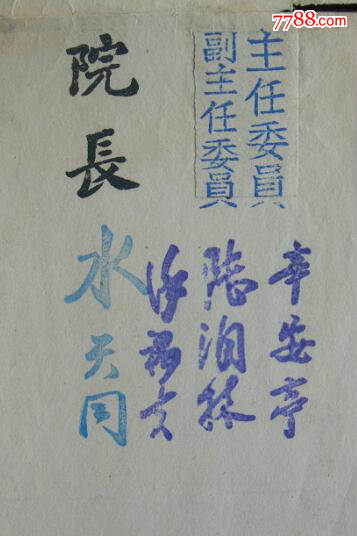 7788.com
主任委員 辛安亭
副主任委員 陸润林
徐褐夫
院長 水天同